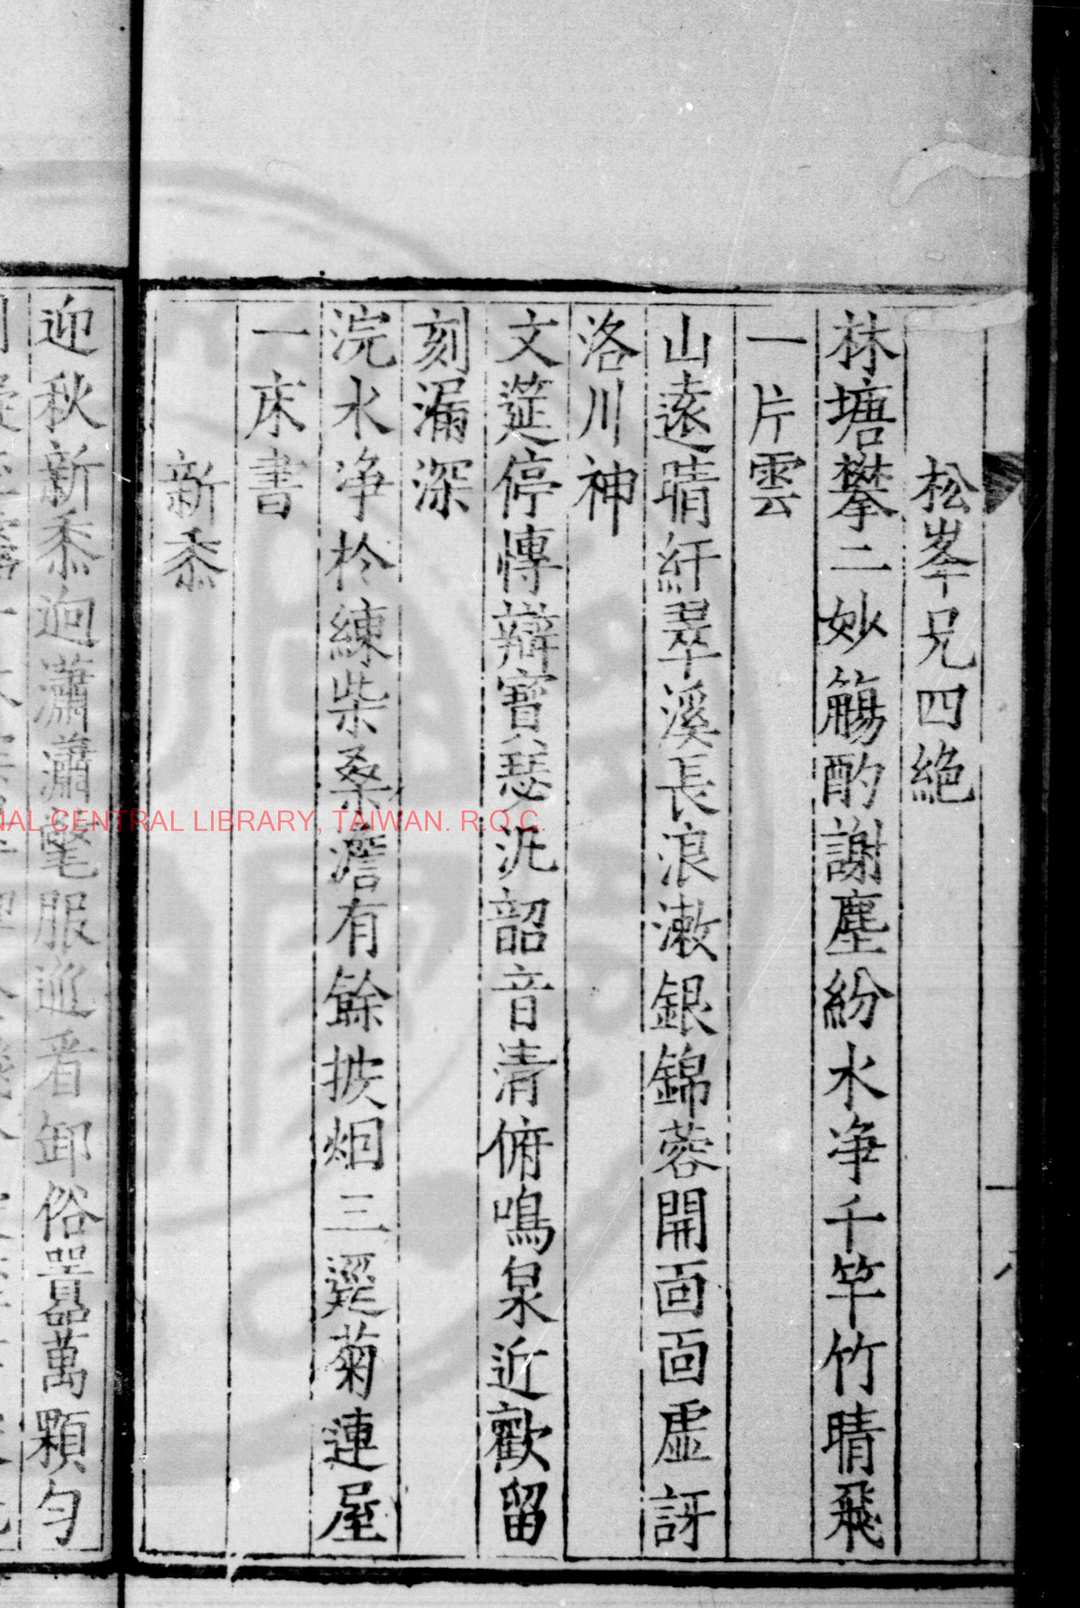 松峯兄四絶
林塘攀二妙觴酌謝塵紛水净千竿竹晴飛
一片雲
山遠晴纤翠溪長浪漱銀錦蓉開面面虛訝
洛川神
文筵停愽辯寶瑟汎韶音清俯鳴泉近歡留
刻漏深
浣水净柃練柴桑澹有餘披烟三逕菊連屋
一床書
新黍
迎秋新黍迥瀟瀟氅服巡看卸俗囂萬顆匀
NAL CENTRAL LIBRARY, TAIWAN. R.O.C.